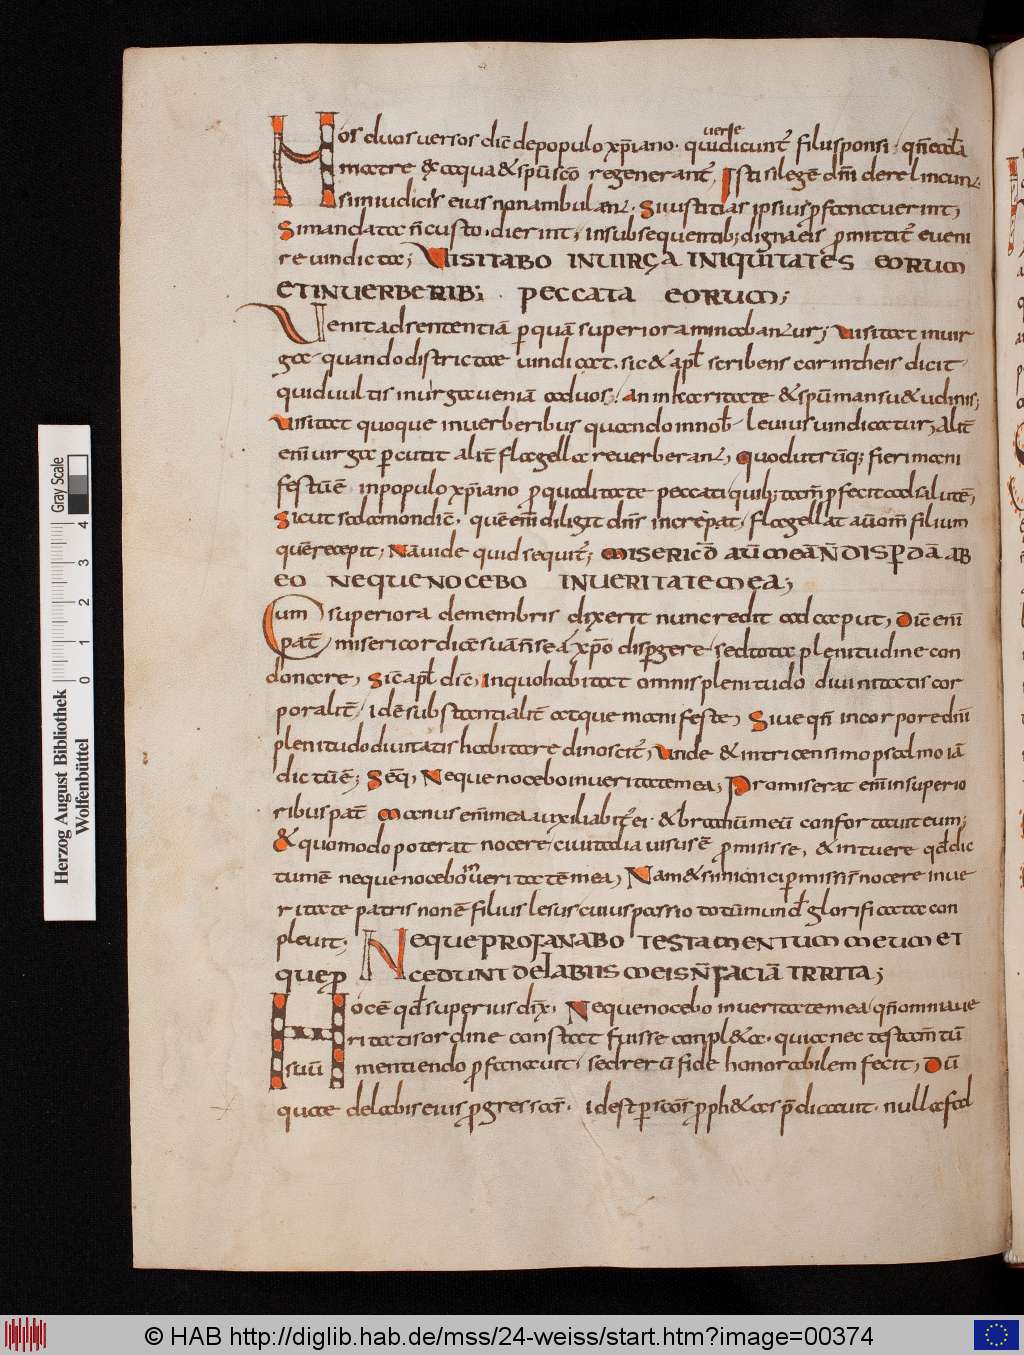 Hos duos uersos dic̄ de populo xp̄iano. qui uersedicunt̄ filii sponsi. qn̄ eccl̄a
matre & aqua & sp̄u sc̄o regenerant̄, Isti si legē dn̄i derelincunt.
si in iudiciis eius non ambulant. Si iustitias ipsius ꝓfanauerint,
Si mandata n̄ custodierint, in subsequentib; dignaeis ꝓmittit̄ eueni
re uindictae; UISITABO IN UIRGA INIQUITATES EORUM
ET IN UERBERIB; PECCATA EORUM;
Uenit ad sententiā ꝑ quā superiora minabantur; Uisitat in uir
ga quando districtae uindicat. sic & apl̄ scribens corintheis dicit
quid uultis in uirga ueniā ad uos; An in karitate & sp̄u mansu&udinis;
Uisitat quoque in uerberibus quando in nob̄ leuius uindicatur, Alit̄
eni̅ uirga ꝑcutit alit̄ flagella reuerberant, Quod utrūq; fieri mani
festū ē in populo xp̄iano ꝓ qualitate peccati quib; tam̄ ꝓfecit ad salutē,
Sicut salamon dic̄. quē eni̅ diligit dn̄s increpat, flagellat aū om̄ filium
quē recepit, Nā uide quid sequit̄; MISERICORD̄ AŪ MEĀ N̄ DISPERDĀ AB
EO NEQUE NOCEBO IN UERITATE MEA;
Cum superiora de membris dixerit nunc redit ad caput, Dic̄ eni̅
pat̄ misericordiā suā n̄ se a xp̄o disꝑgere. sed tota plenitudine con
donare, Sic̄ apl̄ dic̄, In quo habitat omnis plenitudo diuinitatis cor
poralit̄, idē substantialit̄ atque manifeste, Siue qn̄ in corpore dn̄i
plenitudo diuitatis habitare dinoscit̄, Unde & in tricensimo psalmo iā
dictū ē; Seq̄, Neque nocebo in ueritate mea; Promiserat eni̅ in superio
ribus pat̄ Manus eni̅ mea auxiliabit̄ ei. & brachiū meū confortauit eum;
& quomodo poterat nocere cui talia uisus ē ꝓmisisse, & intuere qd̄ dic
tum ē neque nocebo in ueritatē mea, Nam & si inimici ꝑmissi s̄ nocere in ue
ritate patris non ē filius lesus cuius passio totū mund̄ glorificata con
pleuit; NEQUE PROFANABO TESTAMENTUM MEUM ET
QUE PROCEDUNT DE LABIIS MEIS N̄ FACIĀ IRRITA;
Hoc ē qd̄ superius dix̄, Neque nocebo in ueritate mea, qn̄ omnia ue
ritatis ordine constat fuisse conpl&a. quia nec testam̄tū
suū mentiendo ꝓfanauit, sed rerū fide honorabilem fecit, Dū
quae de labis eius ꝓgressa s̄. id est ꝑ scōs ꝓph&as p̄dicauit. nulla fal
Herzog August Bibliothek
Wolfenbüttel
0 1 2 3 4
Gray Scale
© HAB http://diglib.hab.de/mss/24-weiss/start.htm?image=00374